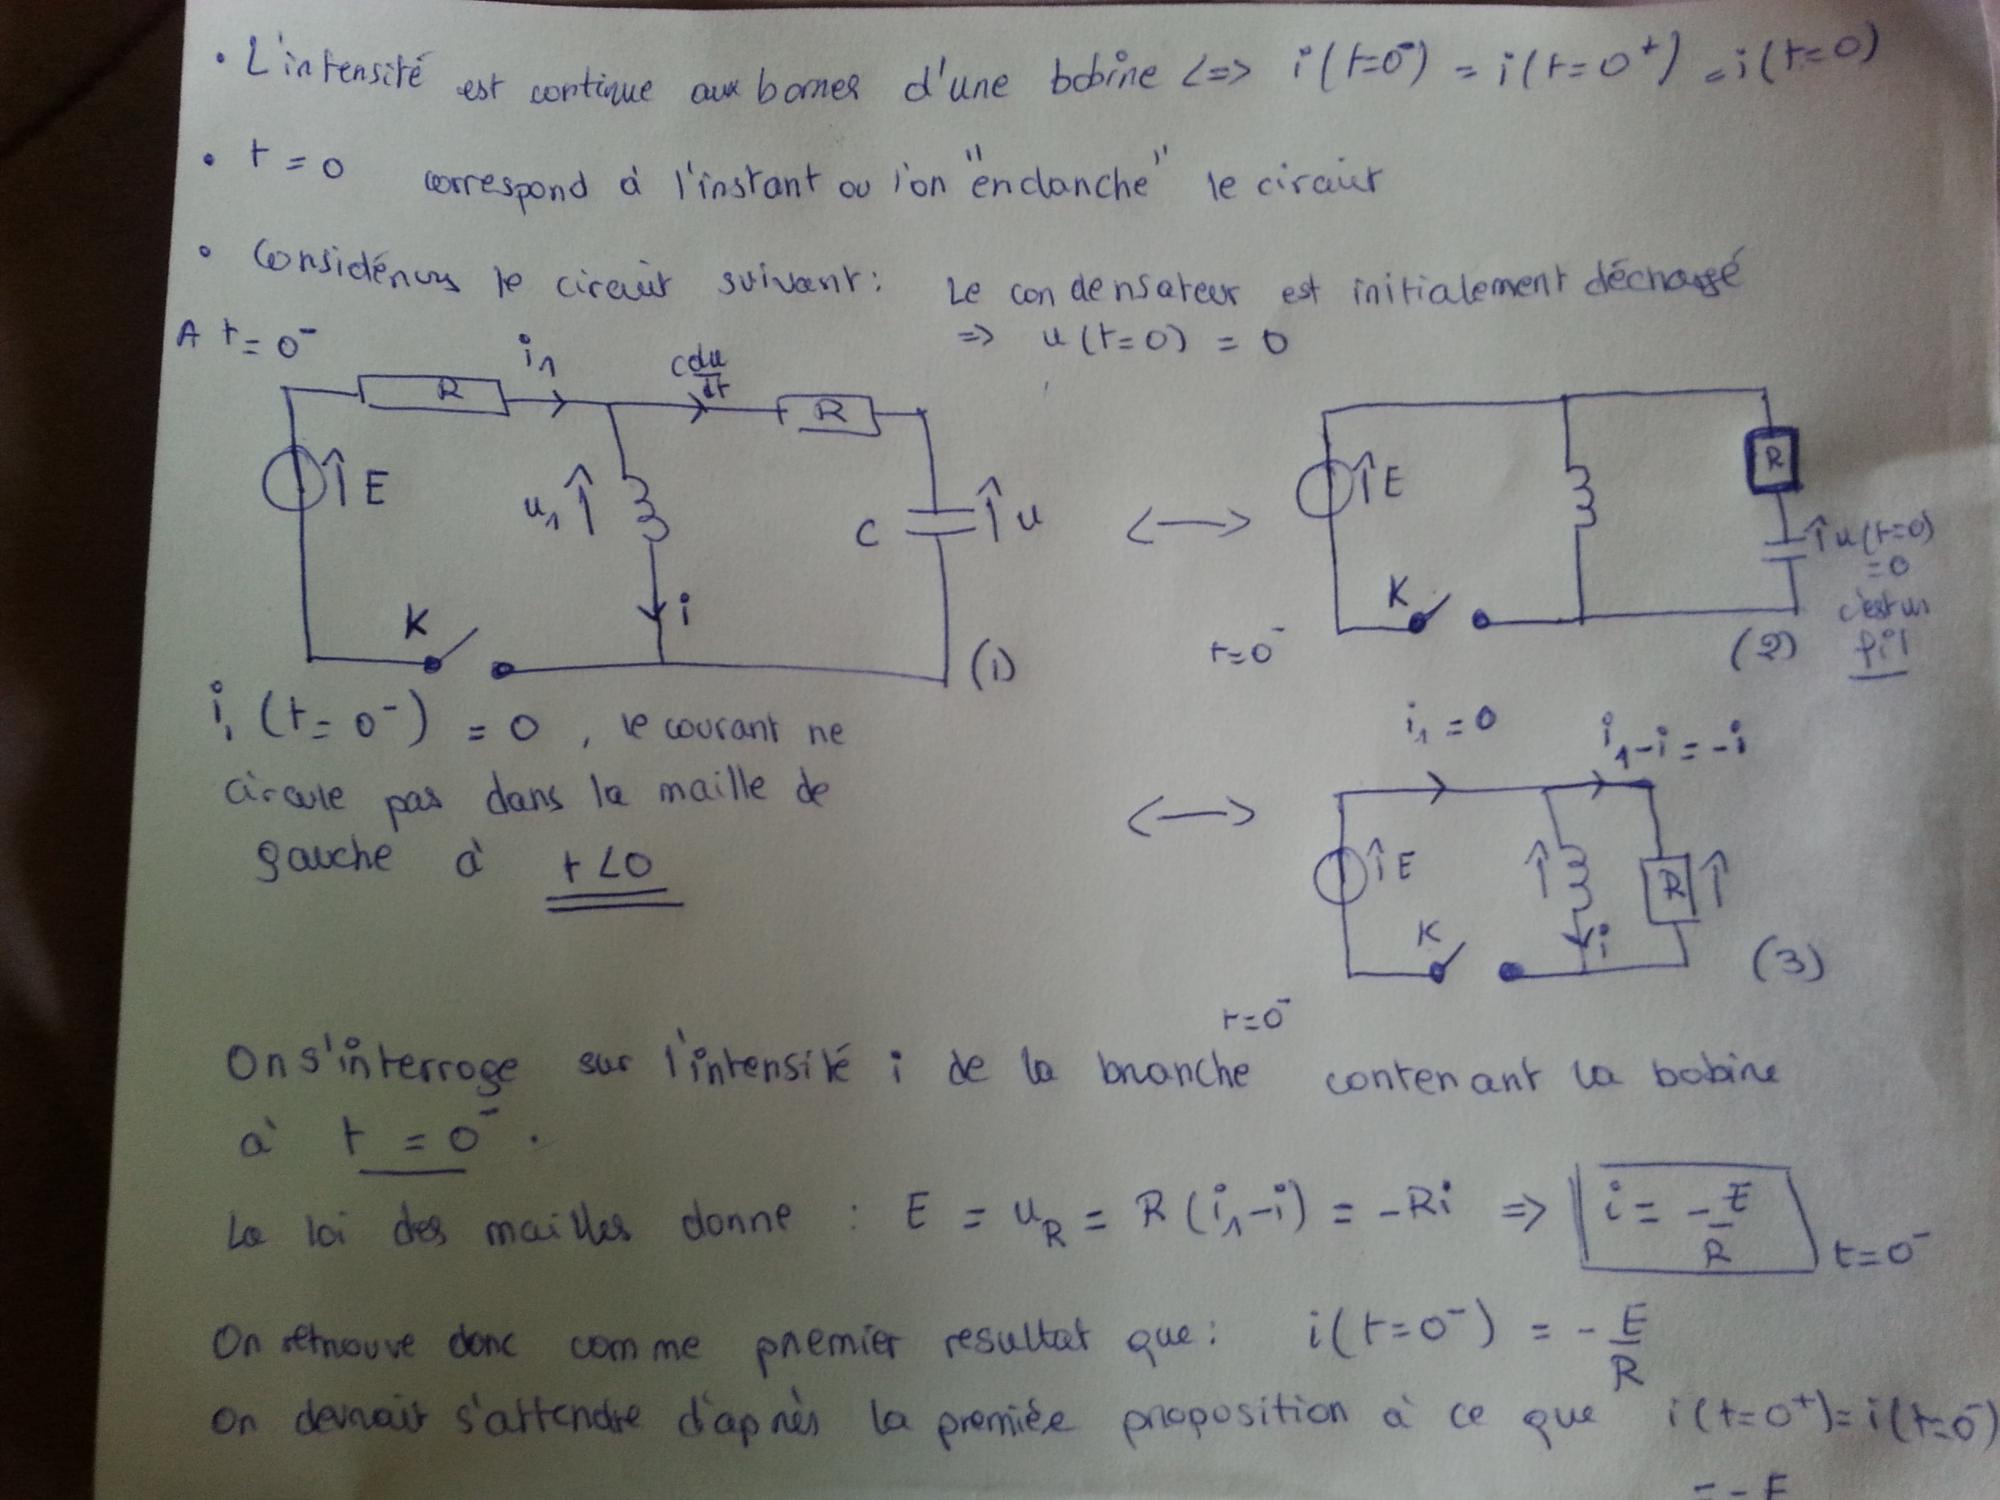 • L'intensité est continue aux bornes d'une bobine <=> i(t=0⁻) = i(t=0⁺) = i(t=0)
• t = 0 correspond à l'instant ou l'on "enclanche" le circuit
• Considérons le circuit suivant : Le condensateur est initialement déchargé
A t = 0⁻
=> u(t=0) = 0
i₁
C du/dt
R
R
E
u₁
i
C
u
K
(1)
<-->
E
R
u(t=0)
= 0
c'est un
fil
K
t=0⁻
(2)
i₁(t=0⁻) = 0, le courant ne
circule pas dans la maille de
gauche à t<0
i₁ = 0
i₁-i = -i
<-->
E
R
i
K
(3)
t=0⁻
On s'interroge sur l'intensité i de la branche contenant la bobine
à t = 0⁻.
La loi des mailles donne : E = u_R = R(i₁-i) = -Ri => i = -E/R t=0⁻
On retrouve donc comme premier resultat que : i(t=0⁻) = -E/R
On devrait s'attendre d'après la premiée proposition à ce que i(t=0⁺)=i(t=0⁻)
= - E